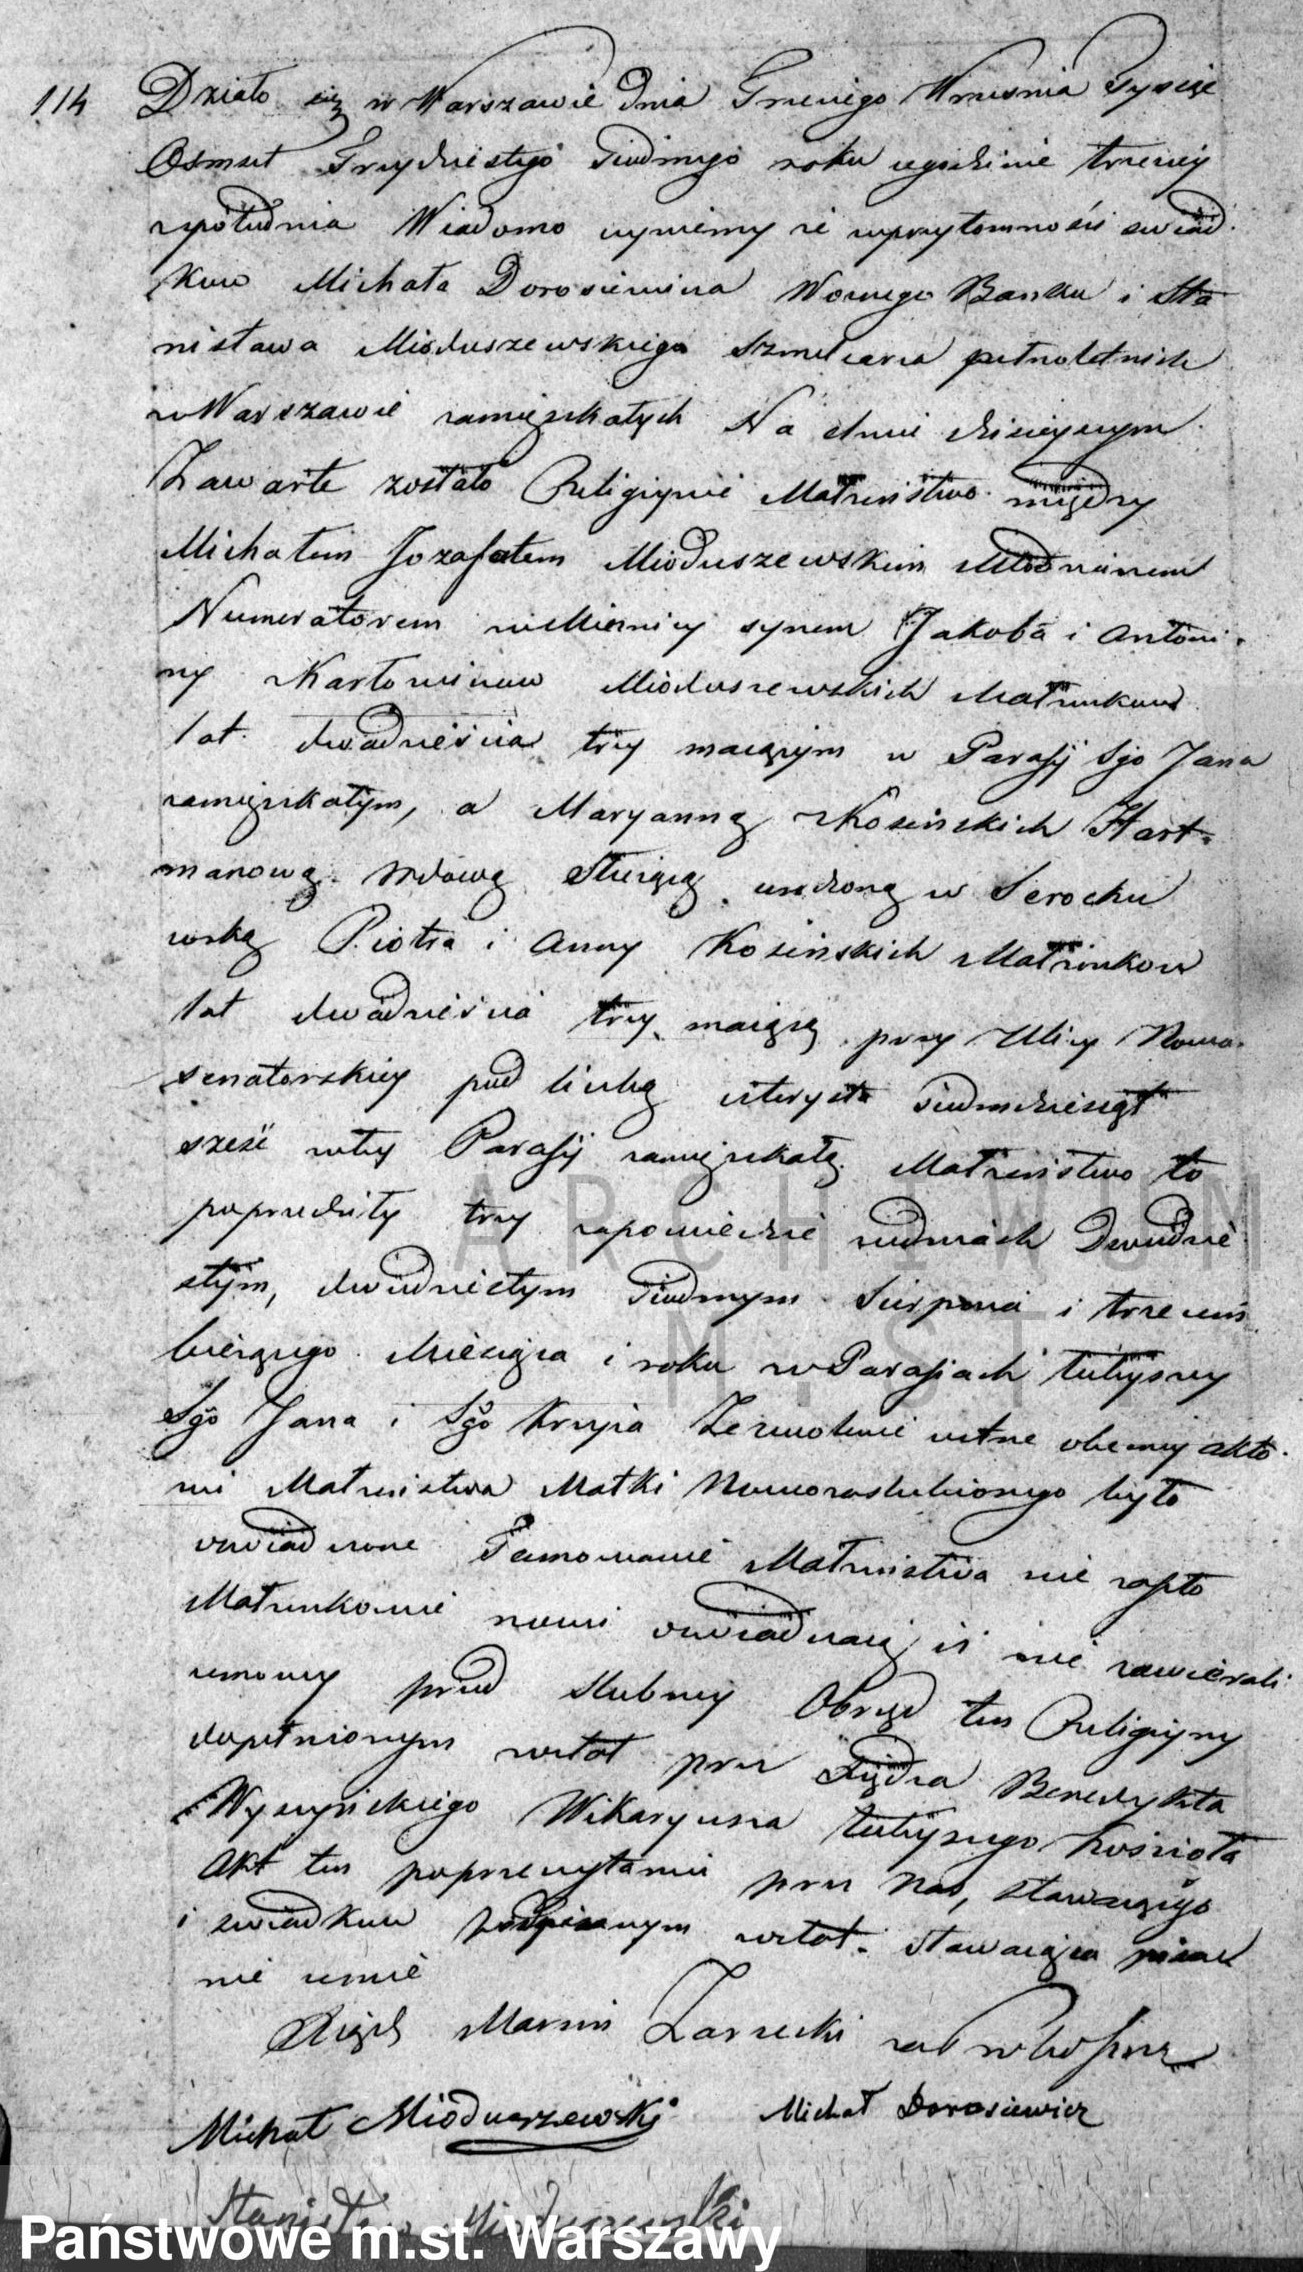 114 Działo się w Warszawie Dnia Trzeciego Wrzesnia Tysiąc
Osmset Trzydziestego Siudmego roku ogodzinie trzeciey
zpołudnia Wiadomo czyniemy że wprzytomności swiad
kow Michała Dorosiewicza Woznego Banku i Sta
nisława Mioduszewskiego Szmuclerza pełnoletnich
w Warszawie zamięszkałych Na dniu dzisieyszym
Zawarte zostało Religiynie Małżeństwo między
Michałem Jozafatem Mioduszewskim Młodzianem
Numeratorem w Mennicy synem Jakoba i Antoni
ny z Karłowiczow Mioduszewskich Małżonkow
lat dwadzieścia trzy maiącym w Parafij Sgo Jana
zamięszkałym, a Maryanną z Kosińskich Hart
manową Wdową Służącą urodzoną w Serocku
corką Piotra i Anny Kosińskich Małżonkow
lat dwadzieścia trzy maiącą przy Ulicy Nowo
senatorskiey pod liczbą czterysta siedmdziesiąt
sześć wtey Parafij zamięszkałą. Małżeństwo to
poprzedziły trzy zapowiedzie wdniach Dwudzie
stym, dwudziestym siudmym Sierpnia i trzecim
bieżącego Miesiąca i roku w Parafiach tuteyszey
Sgo Jana i Sgo Krzyża Zezwolenie ustne obecney akto
wi Małżeństwa Matki Nowozaslubionego było
oswiadczone Tamowanie Małżeństwa nie zaszło
Małżonkowie nowi oswiadczaią iż nie zawierali
umowy przed slubney Obrzęd ten Religiyny
dopełnionym został przez Xiędza Benedykta
Wyszyńskiego Wikaryusza tuteyszego Kościoła
Akt ten poprzeczytaniu przez Nas, stawaiącego
i swiadkow podpisanym został. Stawaiąca pisac
nie umie
Xiądz Marcin Zarzecki
Michał Mioduszewski Michał Dorosiewicz
Stanisław Mioduszewski
ARCHIWUM
M. ST.
Państwowe m.st. Warszawy